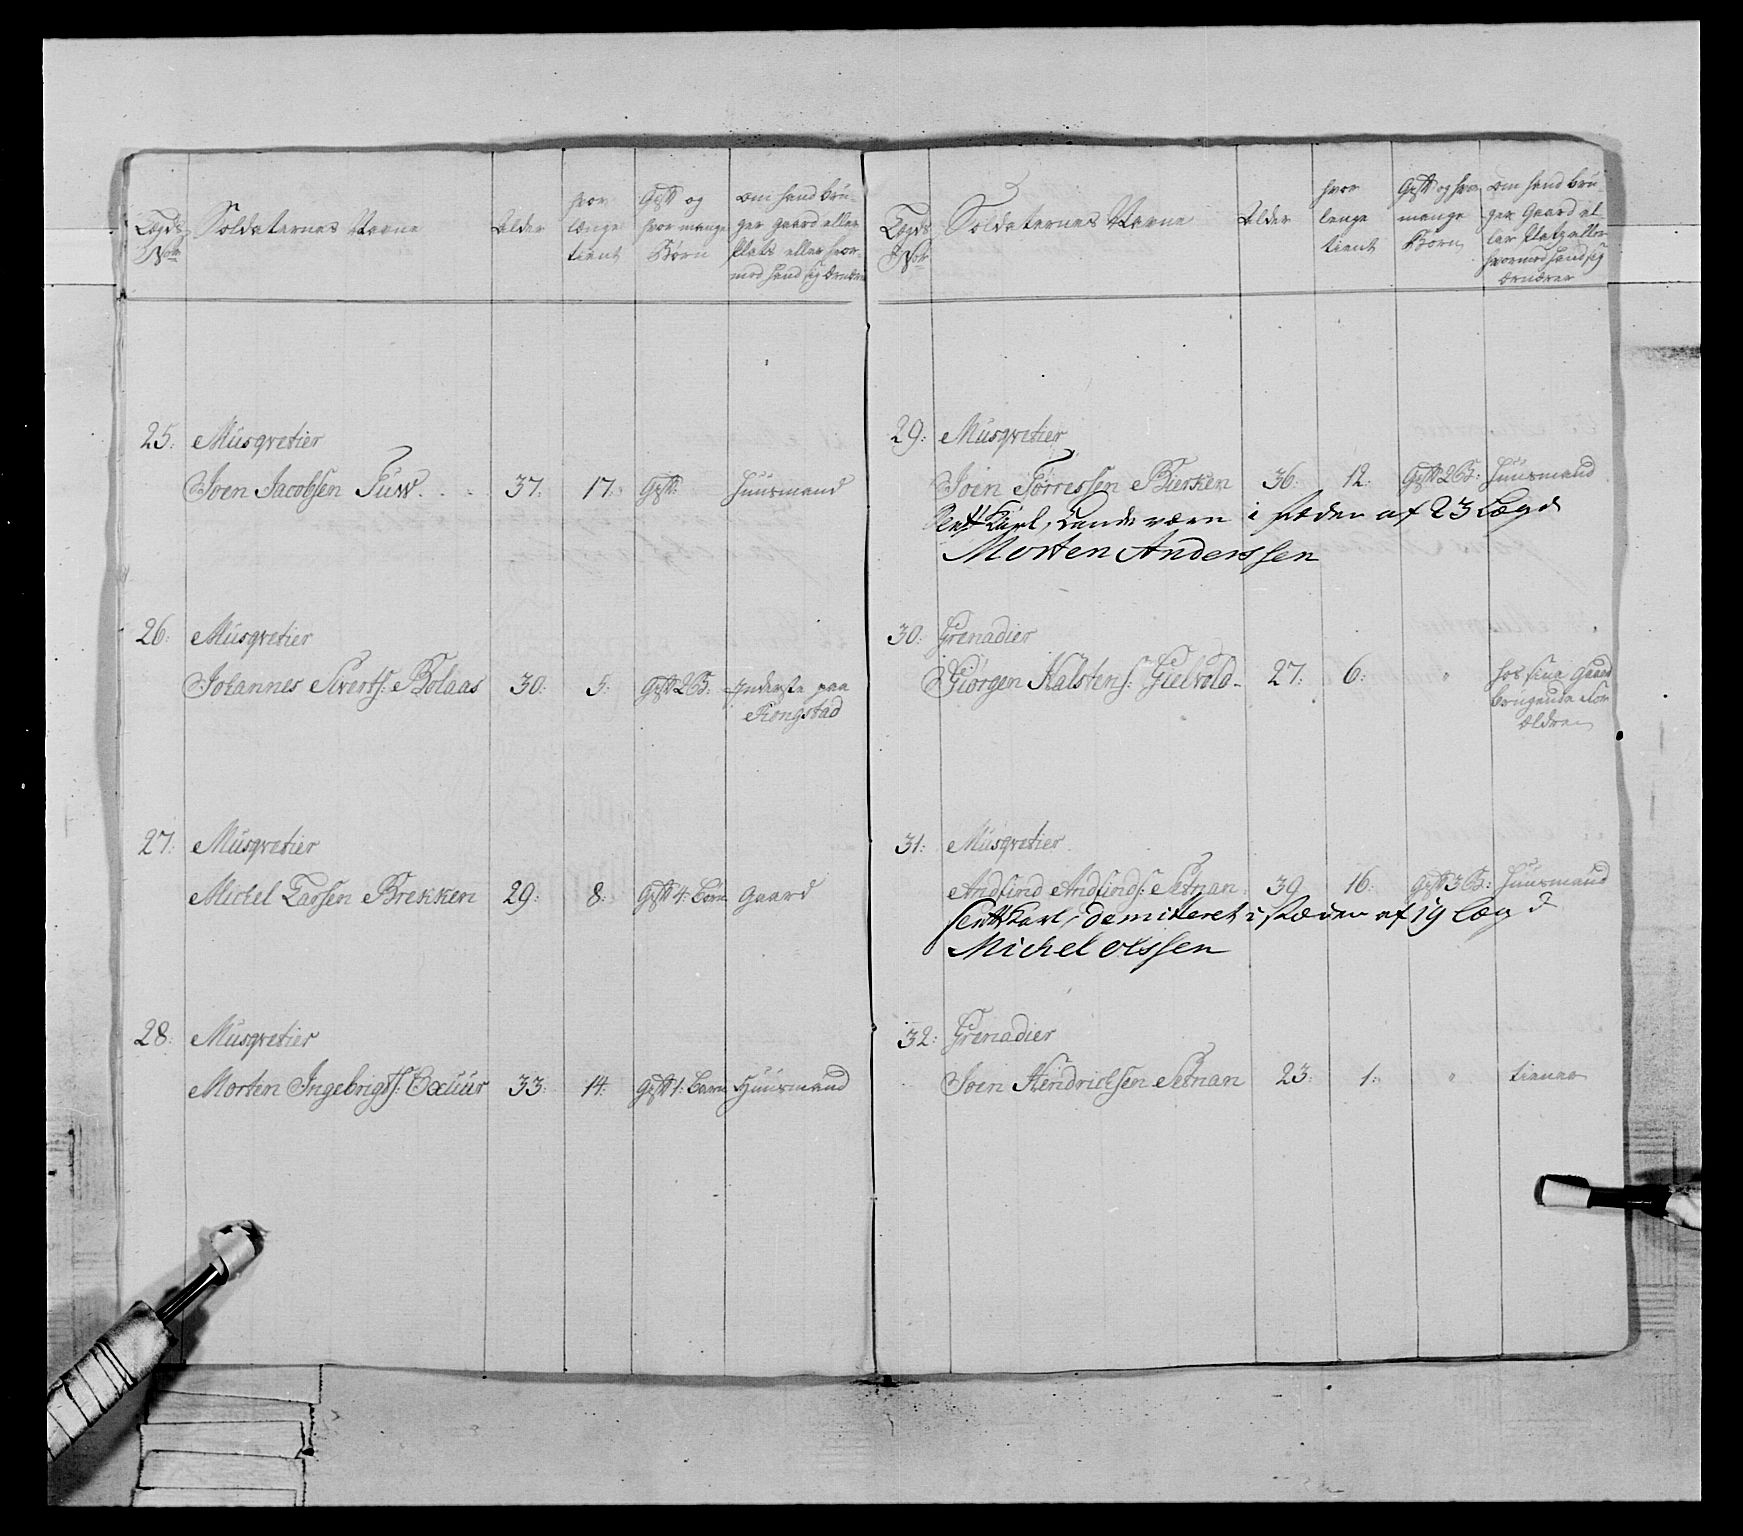 Lægds No Soldaternes Navne Alder hvor længe tient Gift og hvor mange Børn om hand bruger Gaard eller Plads eller hvormed hand sig Ernærer
25: Musqvetier
Joen Jacobsen Tuw . . . 37: 17: Gift: Huusmand
26: Musqvetier
Johannes Siverts: Bolaas 30: 5: Gift 2 B: Inderste paa
Kongstad
27: Musqvetier
Michel Larsen Brekken 29: 8: Gift 4: Børn Gaard
28: Musqvetier
Morten Ingebrigts: Oxuur 33: 14: Gift 1: Barn Huusmand
Lægds No Soldaternes Navne Alder hvor lenge tient Gift og hvor mange Børn om hand bruger Gaard eller Plats eller hvormed hand sig Ernærer
29: Musqvetier
Joen Torressen Bierken 36: 12: Gift 2 B: Huusmand
Karl, Lande værn i stæden af 23 Lægd
Morten Anderssen
30: Grenadier
Giörgen Halstens: Gielvold - 27: 6: " hos sine Gaard
brugende For
Ældre
31: Musqvetier
Andfind Andfinds: Setnan 39 16: Gift 3 B: Huusmand
Karl, demitteret i stæden af 19 Lægd
Michel Olssen
32: Grenadier
Joen Hendrichsen Setnan 23: 1: " tiener